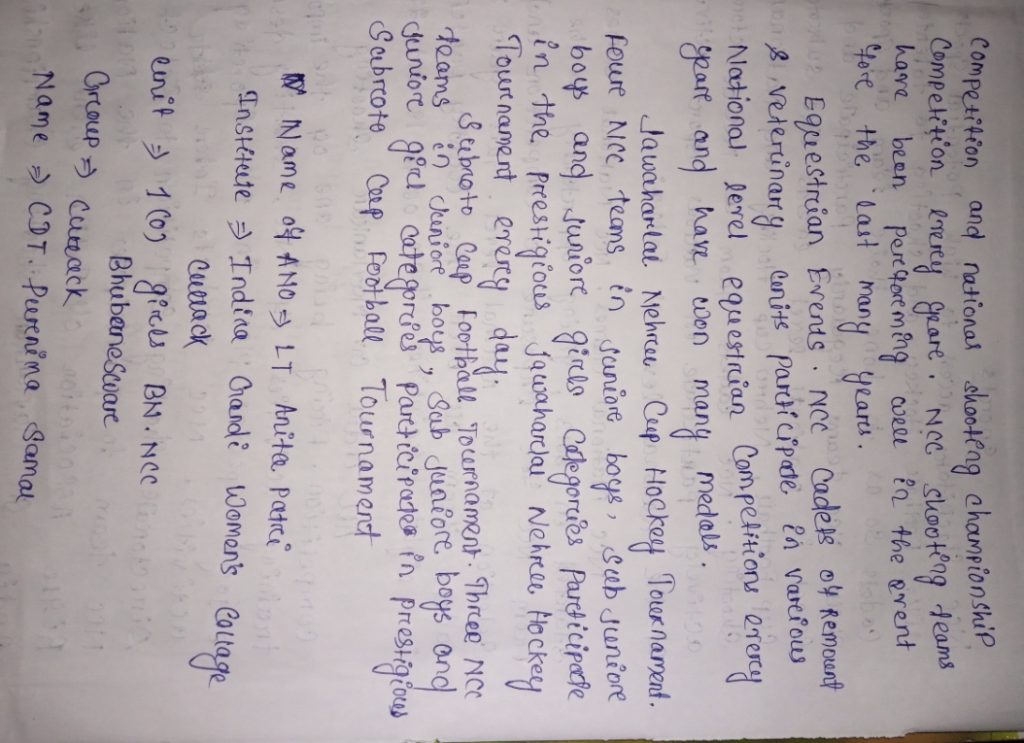 Competition and national shooting championship
Competition every yeare. NCC shooting teams
have been perforeming well in the event
fore the last many years.
Equestrian Events. NCC Cadets of Remount
& veterinary units participate in varcious
National level equestrian Competitions every
yeare and have won many medals.
Jawaharlal Nehru Cup Hockey Tournament.
Foure NCC teams in juniore boys, sub juniore
boys and juniore girls Categories Participate
in the prestigious Jawaharlal Nehru Hockey
Tournament every day.
Subroto Cup Football Tournament. Three NCC
teams in Juniore boys, sub juniore boys and
Juniore girl categories, Participates in prestigious
Subroto Cup Football Tournament
Name of ANO ⇒ LT Anita patri
Institute ⇒ Indira Gandi Women's Collage
Cuttack
unit ⇒ 1(O) girls BN. NCC
Bhubaneswar
Group ⇒ Cuttack
Name ⇒ CDT. Purnima Samal